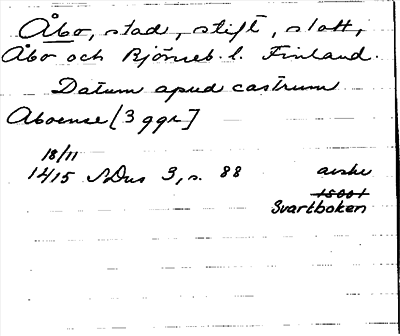 Åbo, stad, stift, slott,
Åbo och Björneb. l. Finland.
Datum apud castrum
Aboense [3 ggr]
18/11
1415 SDns 3, s. 88 avskr
15001
Svartboken